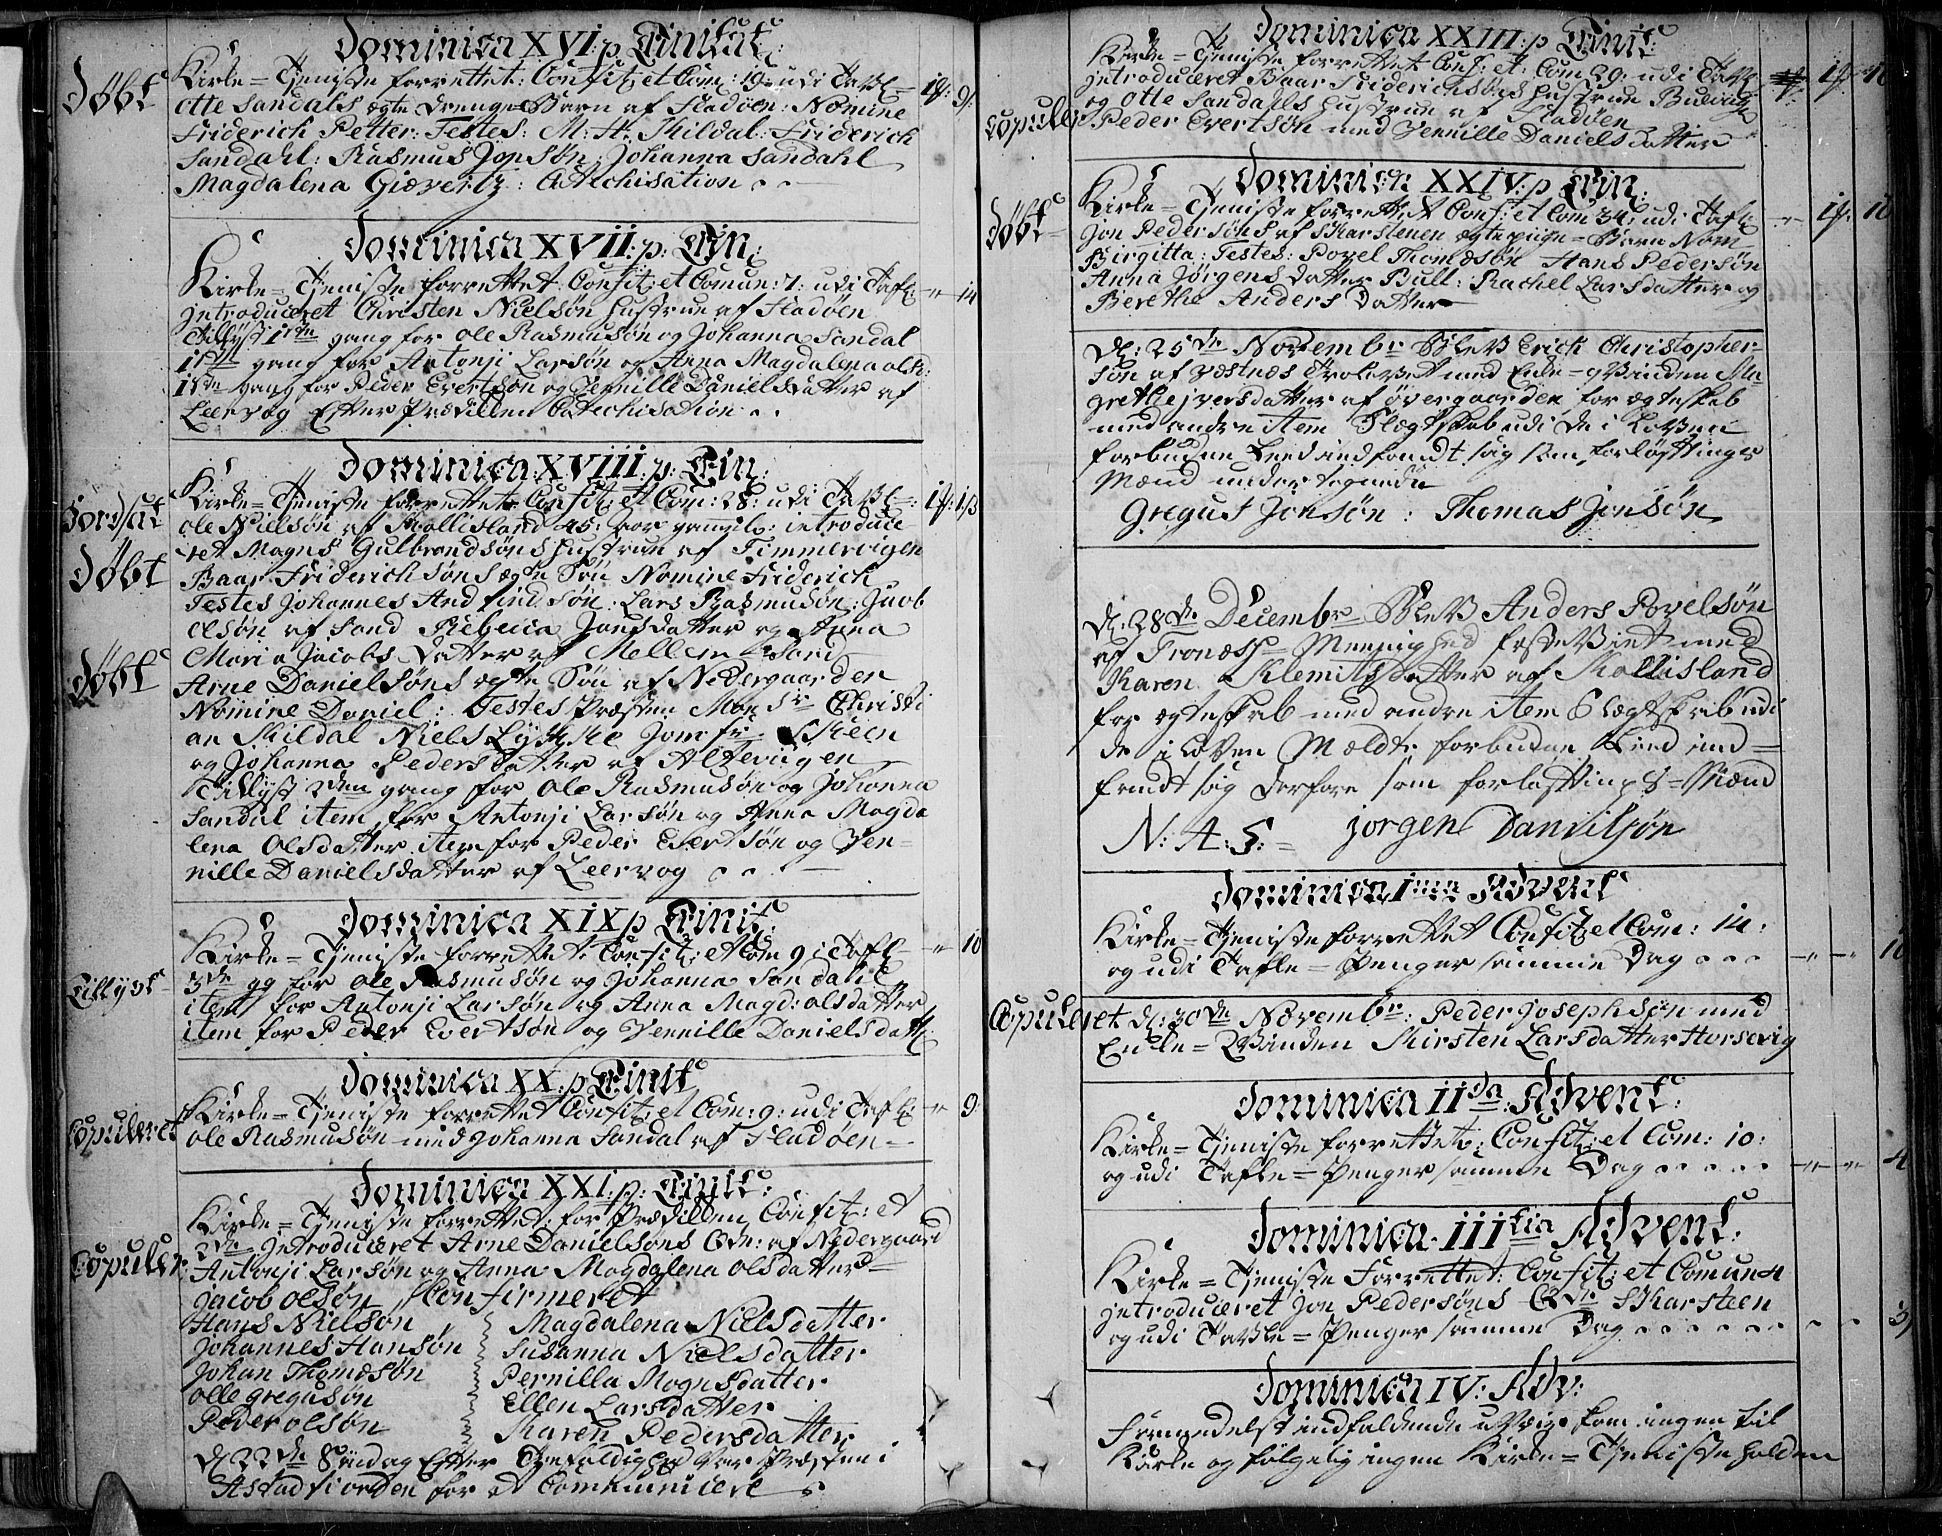 Dominica XVI: p Trinitat:
Døbt
Kirke = Tjeniste forrettet: Confit: et Com: 19: udi Tavl =
Otte Sandals ægte Drenge Barn af Fladøen: Nomine
Friderich Petter: Testes: M: H: Kildal: Friderich
Sandahl: Rasmus Jonsøn: Johanna Sandahl
Magdalena Giævertz: Catechisation
Dominica XVII: p: Trin:
Kirke = Tjeniste forrettet: Confit: et Comun: 7: udi Tafl: 14
Introduceret Christen Nielsøn Hustrue af Fladøen
Tillyst 1ste gang for Ole Rasmusøn og Johanna Sandal
1ste gang for Antonji Larsøn og Anna Magdalena Olsd:
1ste gang for Peder Evertsøn og Jennille Danielsdatter af
Leervog Efter Prædiken Catechisation
Dominica: XVIII: p: Trin:
Kirke = Tjeniste forrettet: Confit: et Com: 28: udi Tavl:
Jordsat
Ole Nielsøn af Kollisland 45: aar gammel: introduce
ret Magns Gulbrandsøns Hustrue af Timmervigen
Døbt
Baar Friderichsøns ægte Søn Nomine Friderich
Testes Johannes Andfindsøn: Lars Rasmusøn: Jacob
Olsøn af Sand Rebecca Jonsdatter og Anna
Maria Jacobs Datter af Mellem Sand
Døbt
Arne Danielsøns ægte Søn af Nedergaarden
Nomine Daniel: Testes Præsten Monsr Christi
an Kildal Niels Lÿkke Jomfr: Skeen
og Johanna Pedersdatter af Altevigen
Tillyst 2den gang for Ole Rasmusøn og Johanna
Sandal item for Antonji Larsøn og Anna Magda
lena Olsdatter item for Peder Evertsøn og Jen =
nille Danielsdatter af Leervog
Dominica XIX p Trinit:
Kirke = Tjeniste forrettet: Confit: et Com 9 i Tafl: 10
Tillyst
3de gg for Ole Rasmusøn og Johanna Sandahl
item for Antonji Larsøn og Anna Magd: Olsdatter
item for Peder Evertsøn og Jennille Danielsdatt:
Dominica XX: p Trinit
Kirke = Tjeniste forrettet Confit: et Com: 9: udi Tafl: 9
Copuleret
Ole Rasmusøn med Johanna Sandal af Fladøen
Dominica XXI: p: Trinit:
Kirke = Tjeniste forrettet: for Prædiken Confit: et
Introduceret Arne Danielsøns Qde: af Nedergaard
Copuler
Antonji Larsøn og Anna Magdalena Olsdatter
Jacob Olsøn Confirmeret
Hans Nielsøn Magdalena Nielsdatter
Johannes Hansøn Susanna Nielsdatter
Johan Thomæsøn Pernilla Mognsdatter
Olle Gregusøn Ellen Larsdatter
Peder Olsøn Karen Pedersdatter
D: 22de Søndag Efter Trefoldighed var Præsten i
Astadfiorden for at Communicere
Dominica XXIII: p Trinit:
Kirke = Tjeniste forrettet Conf: et: Com 29: udi Tavl
Introduceret Baar Friderichsøns Hustrue
og Otte Sandahls Hustrue af Fladøen
Copuler
Peder Evertsøn med Jennille Daniels Datter
Dominica XXIV: p Trin:
Kirke = Tjeniste forrettet Conf: et Com 34: udi Tafl:
Døbt
Jon Pedersøns af Skarstenen ægte pige = Barn Nom
Birgitta: Testes: Povel Thomæsøn Hans Pedersøn
Anna Jørgens Datter Bull: Rachel Larsdatter og
Berethe Anders Datter
D: 25de Novembr Blev Erick Christopher
søn af Vestnes Trolovet med Enke = qvinden Ma
grethe Iversdatter af Øvergaarden for ægteskab
med andre item Slægtskab udi de i Loven
forbudne Leed indfandt sig som forløftnings
Mænd undertegnede
Gregus Jonsøn: Thomas Jonsøn
D: 28de Decembr Blev Anders Povelsøn
af Tronæs = Menighed fæstet med
Karen Klemitsdatter af Kollisland
for ægteskab med andre item Slægtskab udi
de i Loven Mældte forbudne Leed ind =
fandt sig derfore som forløftnings = Mænd
N: A: S: = Jørgen Danielsøn
Dominica Ima Advent
Kirke = Tjeniste forrettet Confit: et Com: 14:
og udi Tafle = Penger samme Dag 10
Copuleret d: 30de Novembr: Peder Josephsøn med
Enke = Qvinden Kirsten Larsdatter Horsevig
Dominica IIda Advent:
Kirke = Tjeniste forrettet: Confit: et Com: 10:
og udi Tafle = Penger samme Dag 4
Dominica: IIItia Advent:
Kirke = Tjeniste Forrettet: Confit: et Comun 4
Introduceret Jon Pedersøns Qde Skarsteen
og udi Tavle = Penger samme Dag 3
Dominica IV: Adv:
Formedelst indfaldende uVeir kom ingen til
Kirke og følgelig ingen Kirke = Tjeniste holden